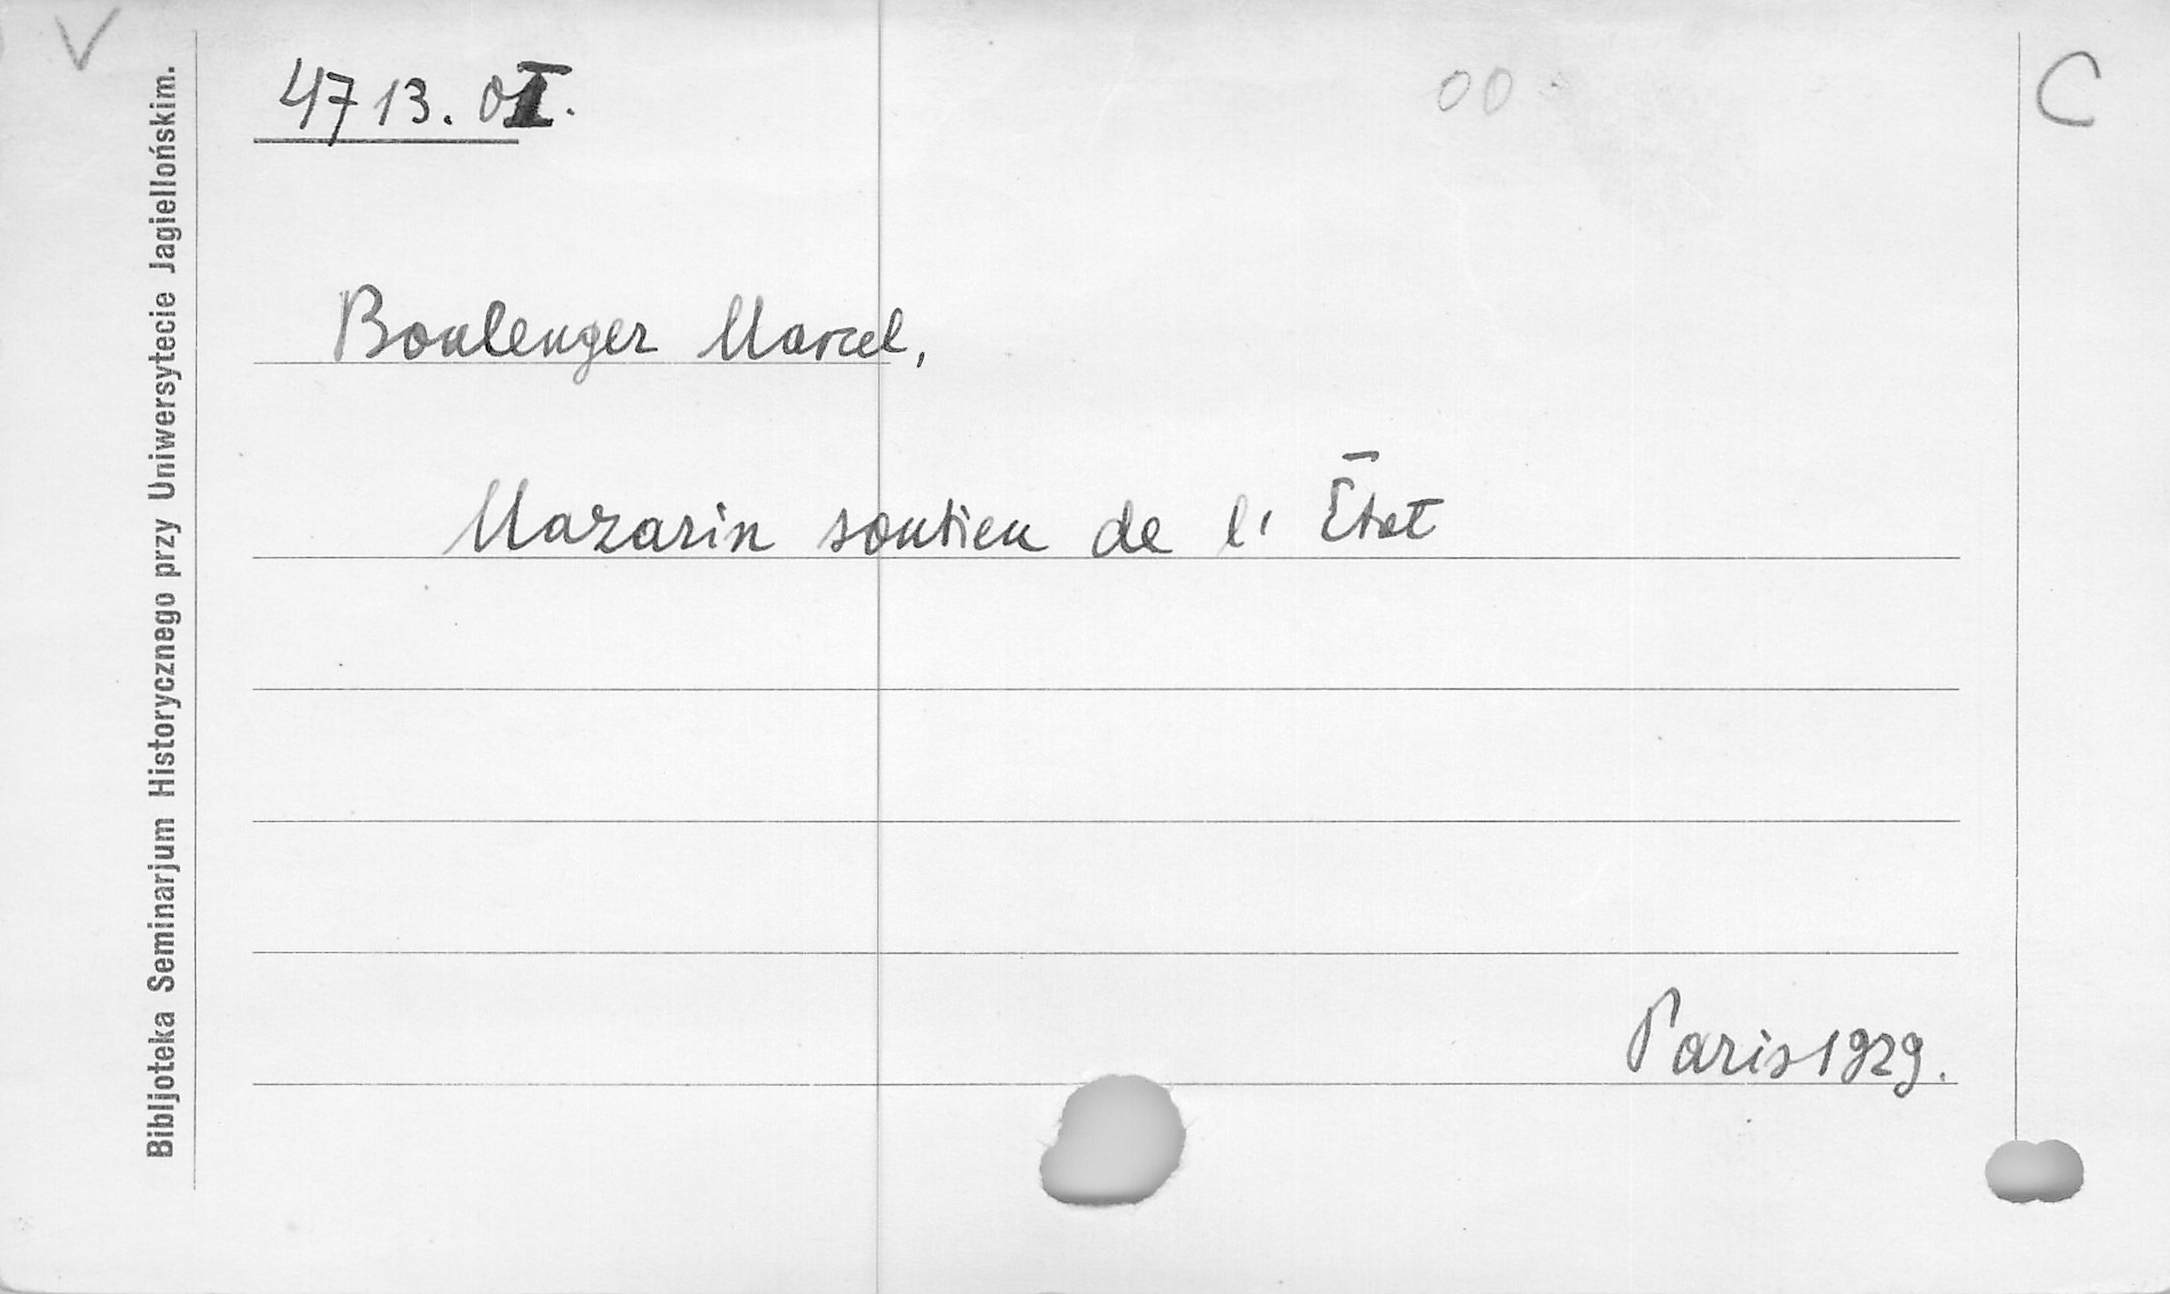 V
4713. 0I.
00
C
Boulenger Marcel,
Mazarin soutien de l' État
Paris 1929.
Bibljoteka Seminarjum Historycznego przy Uniwersytecie Jagiellońskim.